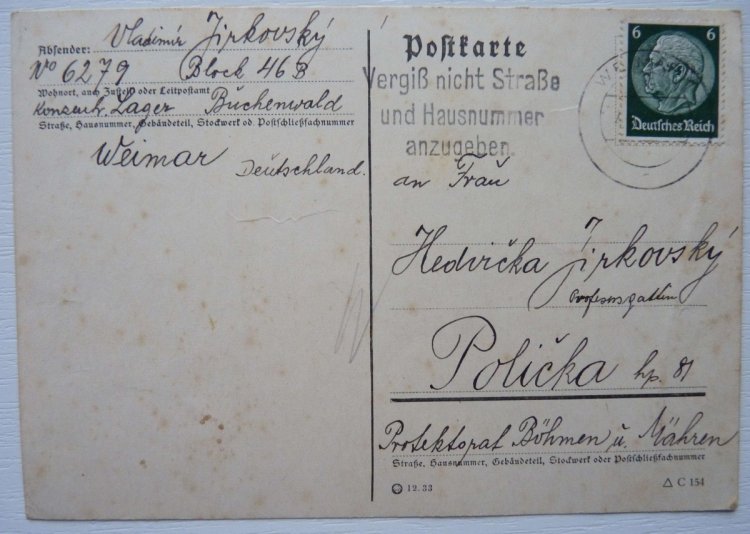 Absender: Vladimír Jirkovský
No 6279 Block 46B
Wohnort, auch Zustell- oder Leitpostamt
Konzentr. Lager Buchenwald
Straße, Hausnummer, Gebäudeteil, Stockwerk od. Postschließfachnummer
Weimar Deutschland.
Postkarte
Vergiß nicht Straße
und Hausnummer
anzugeben.
6 6
Deutsches Reich
an Frau
Hedvička Jirkovský
Professorsgattin
Polička hp. 81
Protektorat Böhmen u. Mähren
Straße, Hausnummer, Gebäudeteil, Stockwerk oder Postschließfachnummer
12.33
C 154